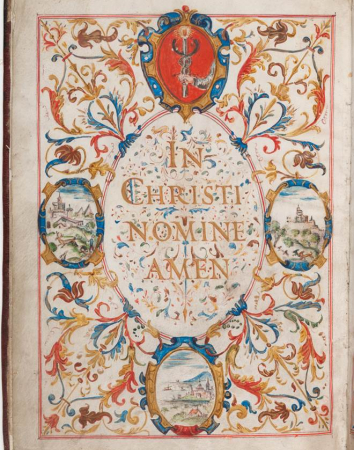 IN
CHRISTI
NOMINE
AMEN